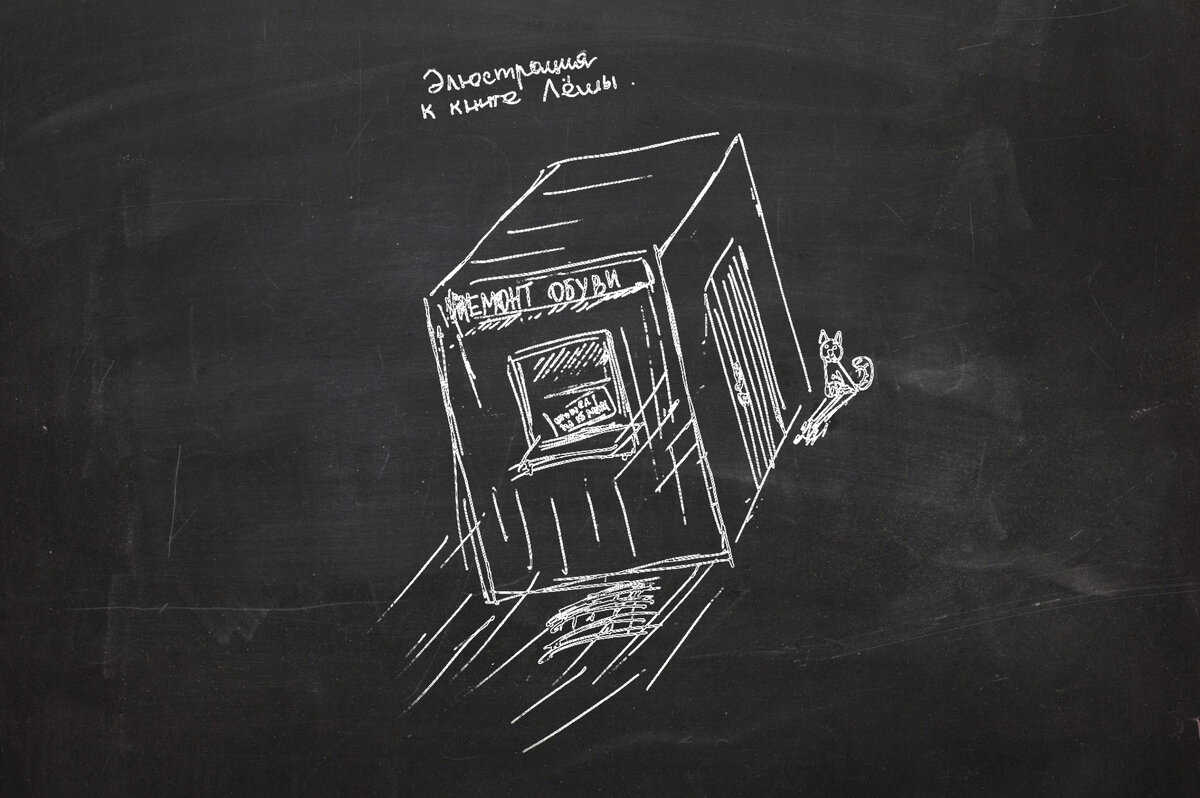 Элюстрация
к книге Лёшы.
РЕМОНТ ОБУВИ